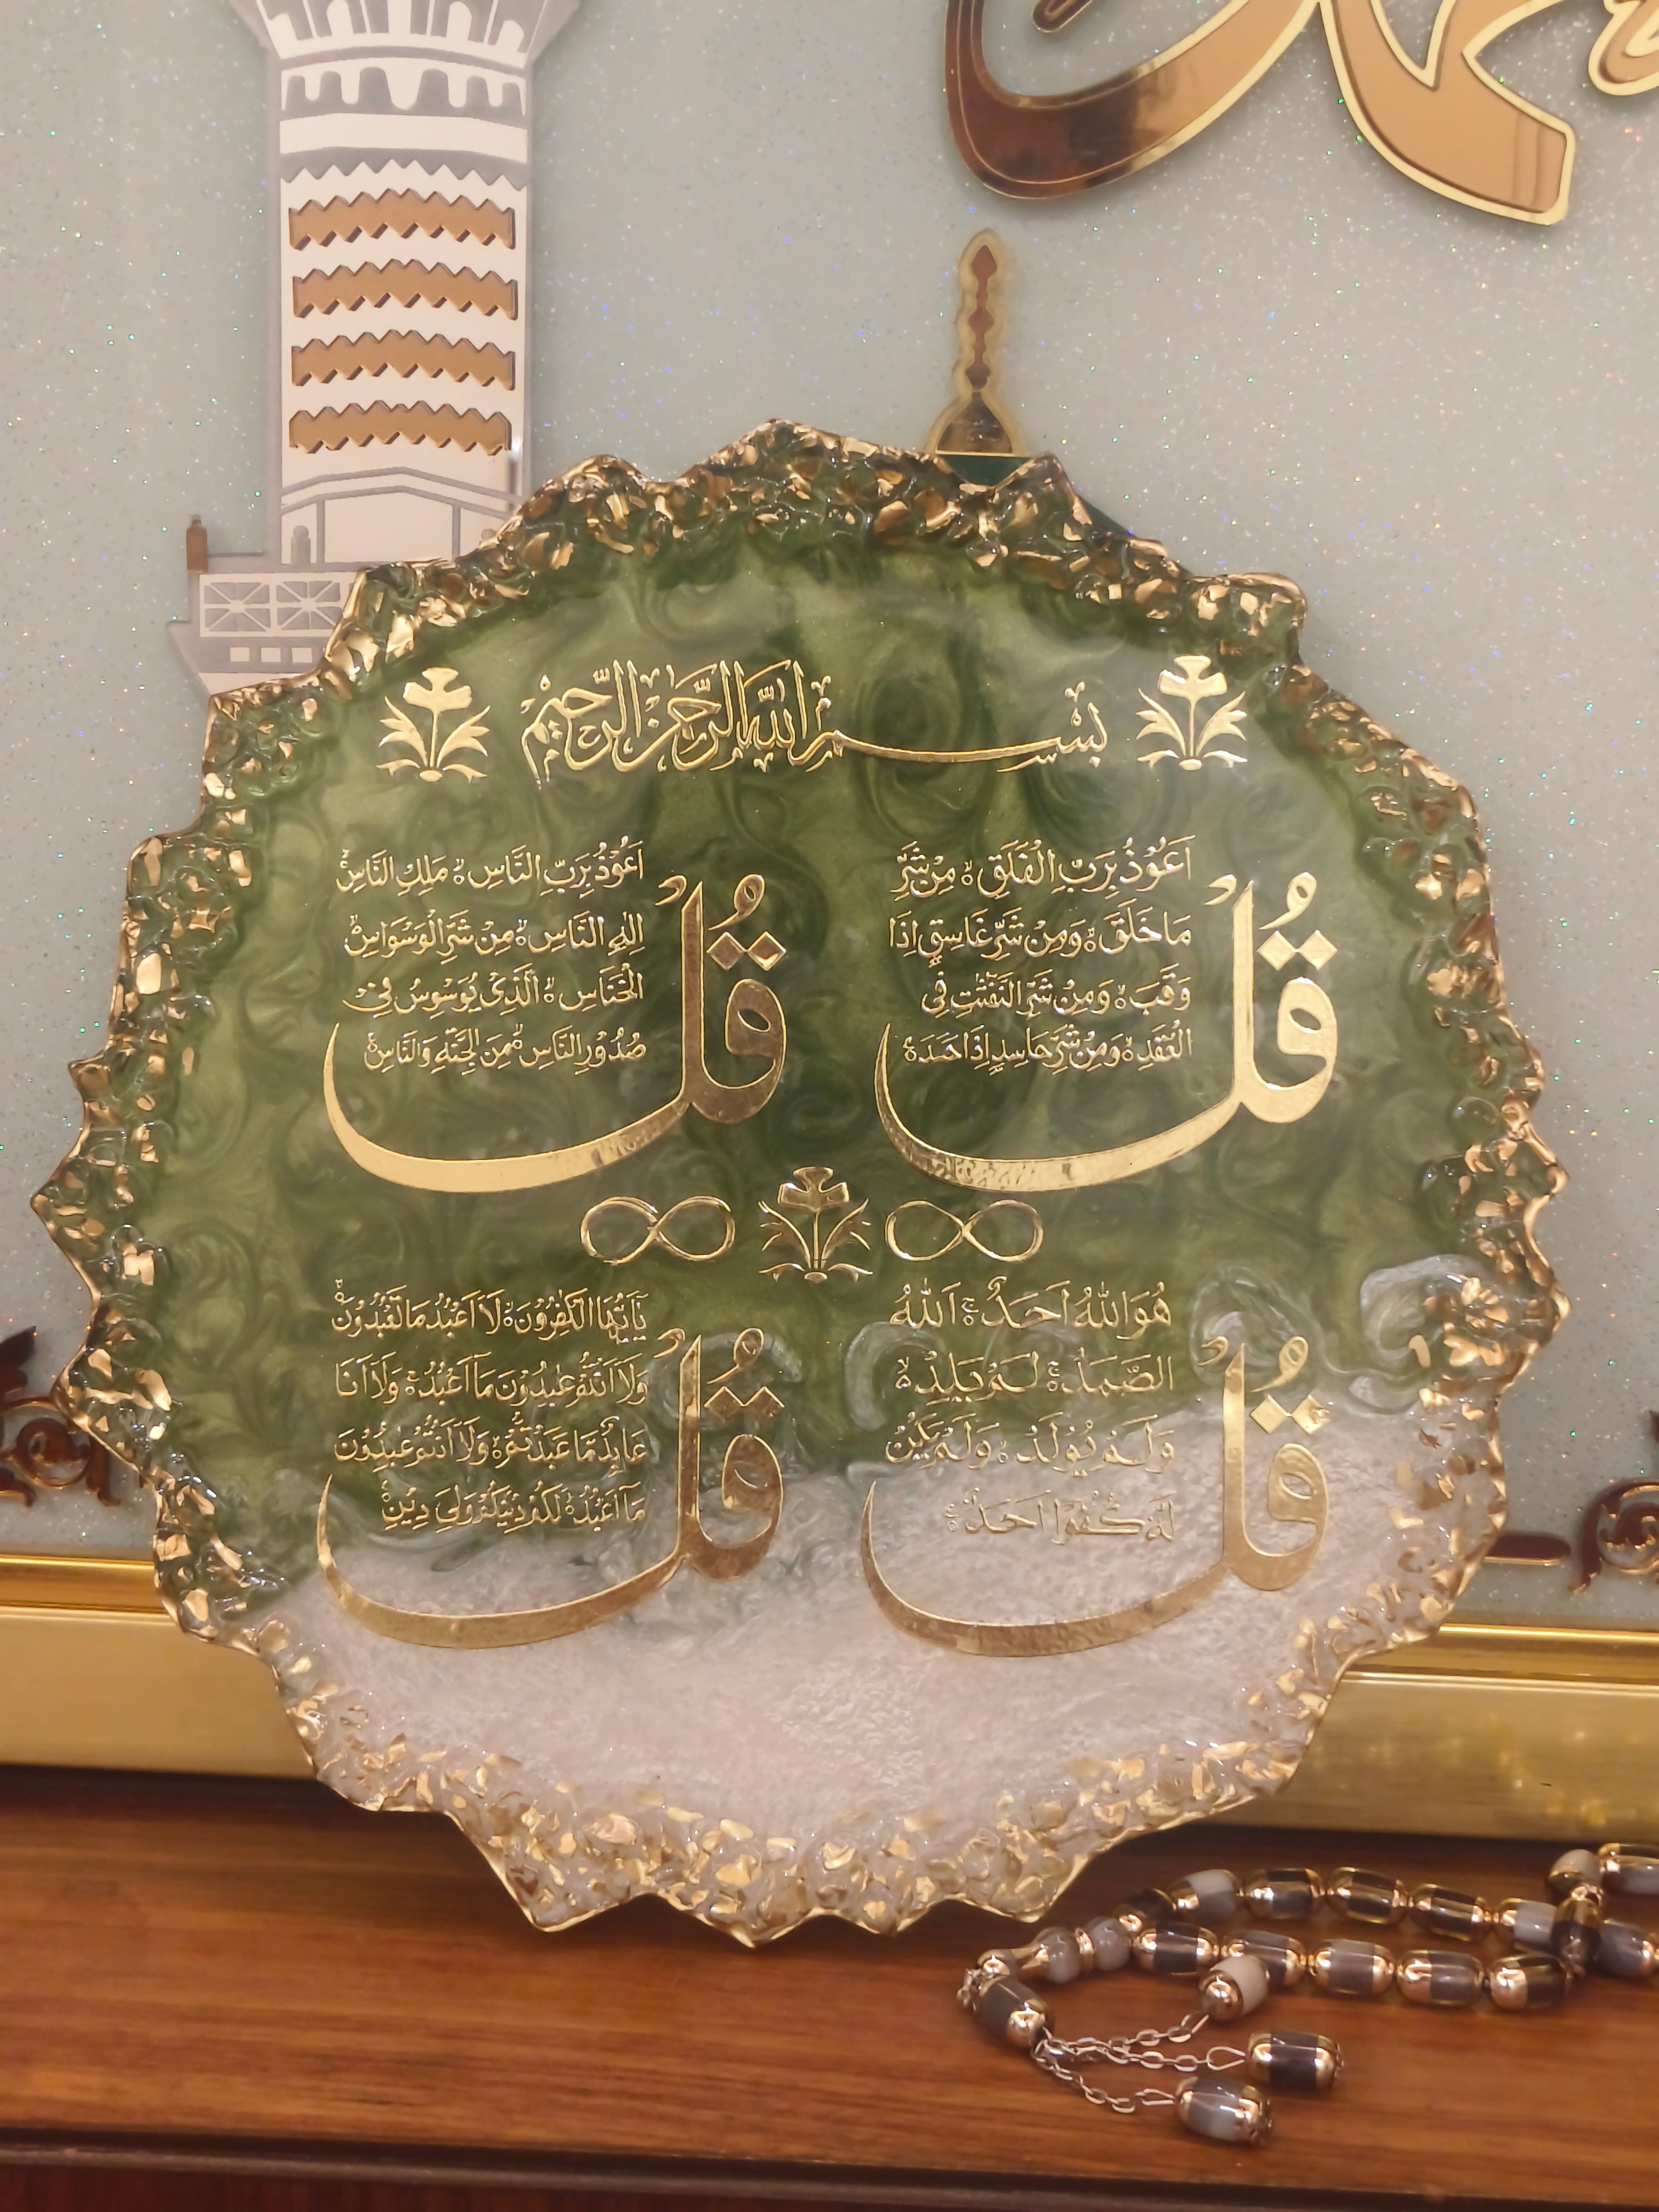 بِسْمِ اللّٰهِ الرَّحْمٰنِ الرَّحِيْمِ
قُلْ
اَعُوْذُ بِرَبِّ الْفَلَقِ ۙ مِنْ شَرِّ
مَا خَلَقَ ۙ وَمِنْ شَرِّ غَاسِقٍ اِذَا
وَقَبَ ۙ وَمِنْ شَرِّ النَّفّٰثٰتِ فِى
الْعُقَدِ ۙ وَمِنْ شَرِّ حَاسِدٍ اِذَا حَسَدَ
قُلْ
اَعُوْذُ بِرَبِّ النَّاسِ ۙ مَلِكِ النَّاسِ
اِلٰهِ النَّاسِ ۙ مِنْ شَرِّ الْوَسْوَاسِ
الْخَنَّاسِ ۙ الَّذِىْ يُوَسْوِسُ فِىْ
صُدُوْرِ النَّاسِ ۙ مِنَ الْجِنَّةِ وَالنَّاسِ
قُلْ
هُوَ اللّٰهُ اَحَدٌ ۚ اَللّٰهُ
الصَّمَدُ ۚ لَمْ يَلِدْ ۙ
وَلَمْ يُوْلَدْ ۙ وَلَمْ يَكُنْ
لَّهٗ كُفُوًا اَحَدٌ
قُلْ
يٰٓاَيُّهَا الْكٰفِرُوْنَ ۙ لَآ اَعْبُدُ مَا تَعْبُدُوْنَ
وَلَآ اَنْتُمْ عٰبِدُوْنَ مَآ اَعْبُدُ ۚ وَلَآ اَنَا
عَابِدٌ مَّا عَبَدْتُّمْ ۙ وَلَآ اَنْتُمْ عٰبِدُوْنَ
مَآ اَعْبُدُ ۗ لَكُمْ دِيْنُكُمْ وَلِىَ دِيْنِ